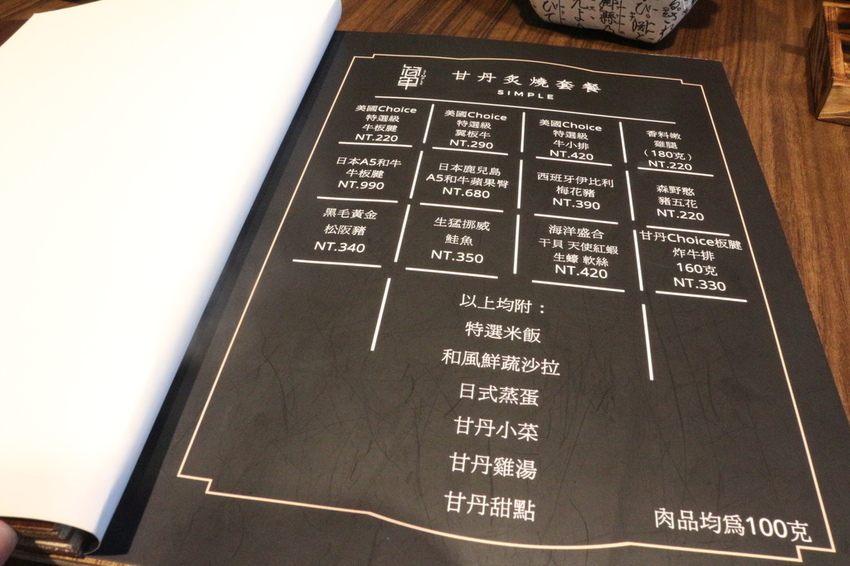 甘丹炙燒套餐
SIMPLE
美國Choice
特選級
牛板腱
NT.220
美國Choice
特選級
翼板牛
NT.290
美國Choice
特選級
牛小排
NT.420
香料嫩
雞腿
(180克)
NT.220
日本A5和牛
牛板腱
NT.990
日本鹿兒島
A5和牛蘋果臀
NT.680
西班牙伊比利
梅花豬
NT.390
森野憨
豬五花
NT.220
黑毛黃金
松阪豬
NT.340
生猛挪威
鮭魚
NT.350
海洋盛合
干貝 天使紅蝦
生蠔 軟絲
NT.420
甘丹Choice板腱
炸牛排
160克
NT.330
以上均附：
特選米飯
和風鮮蔬沙拉
日式蒸蛋
甘丹小菜
甘丹雞湯
甘丹甜點
肉品均爲100克